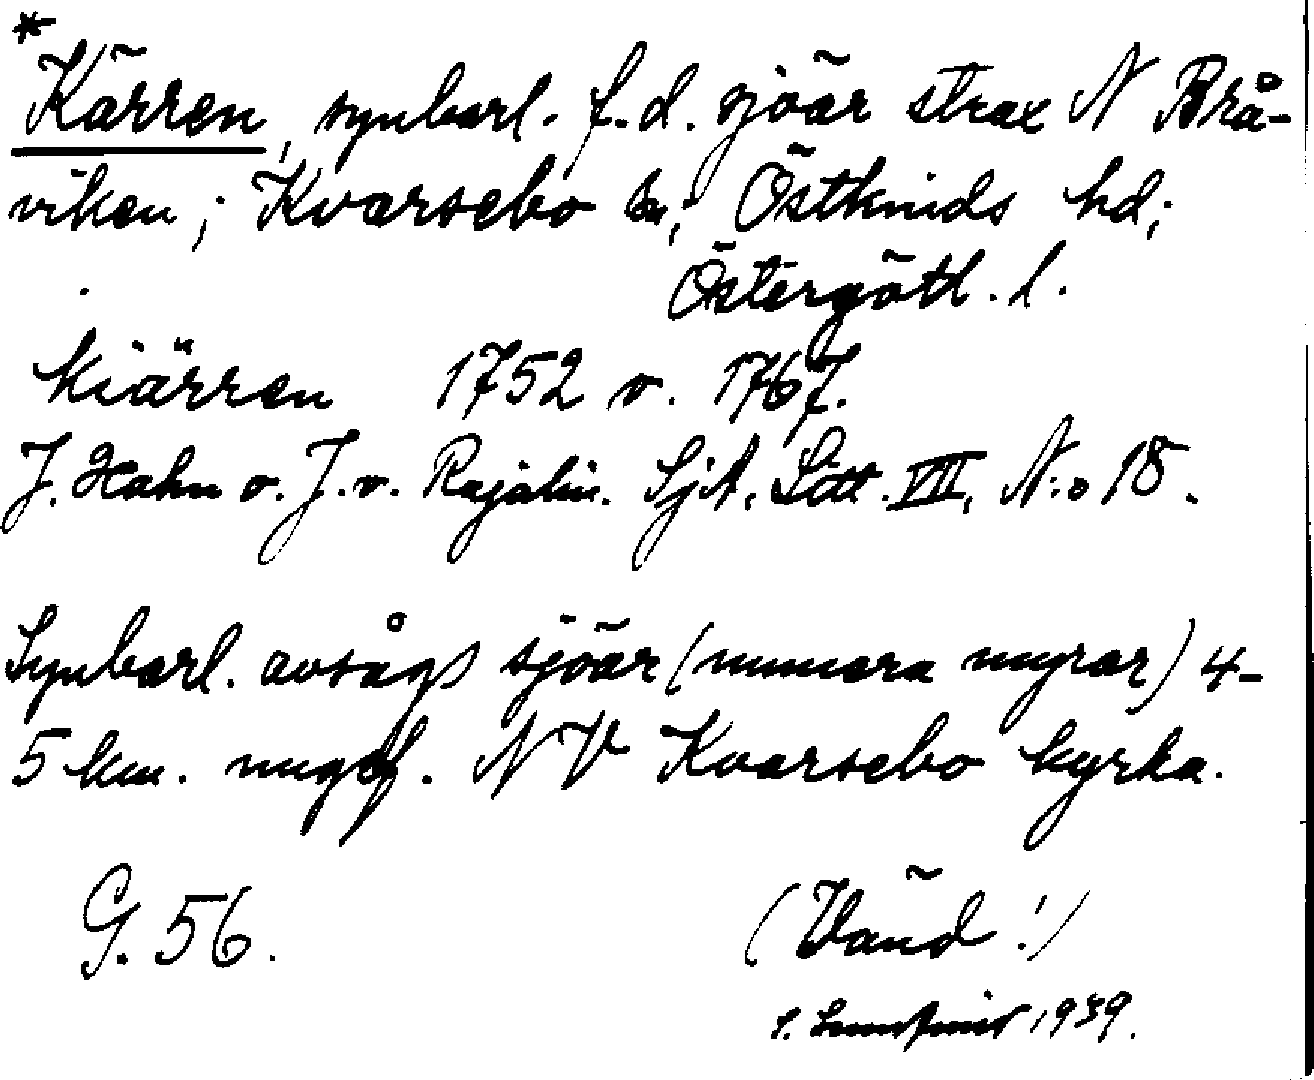 *
Kärren, synbarl. f.d. sjöar strax N Brå-
viken; Kvarsebo sn; Östkinds hd;
Östergötl. l.
kiärren 1752 o. 1767.
J. Hahn o. J. v. Rajalin. SjA, Litt. VII, N:o 18.
Synbarl. avsågs sjöar (numera myrar) 4-
5 km. ungef. NV Kvarsebo kyrka.
G. 56.
(Vänd!)
1939.